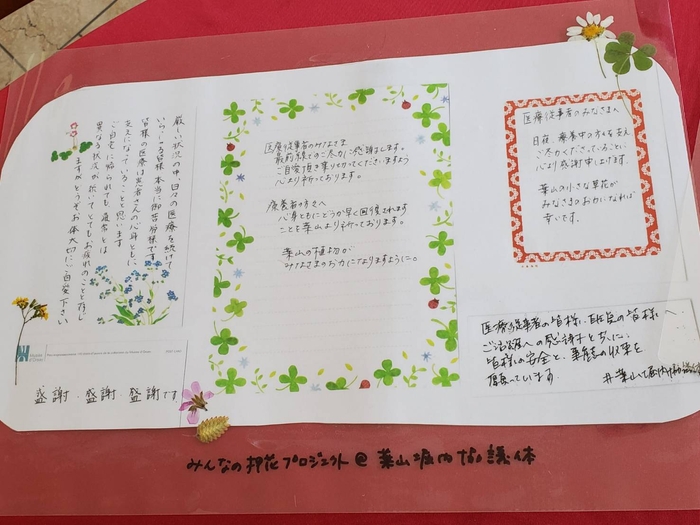 厳しい状況の中、日々の医療を続けて
いらっしゃる皆様、本当に御苦労様です。
皆様の医療は患者さんの心身ともに
支えになっていることと思います
ご自宅に帰られても、通常とは
異なる状況が続いてとてもお疲れのことと存じ
ますがどうぞお体大切に、ご自愛下さい
感謝・感謝・感謝です。
医療従事者のみなさま
最前線でのご尽力に感謝します。
ご自愛頂き乗り切ってくださいますよう
心より祈っております。
療養者の方々へ
心身ともにどうか早く回復されます
ことを葉山より祈っております。
葉山の植物が
みなさまのお力になりますように。
医療従事者のみなさまへ
日夜、療養中の方々を支え
ご尽力くださっていること、
心より感謝申し上げます。
葉山の小さな草花が
みなさまのお力になれば
幸いです。
医療従事者の皆様、患者の皆様へ
ご活躍への感謝とともに
皆様の安全と、事態の収束を
願っています
みんなの押花プロジェクト@葉山堀内